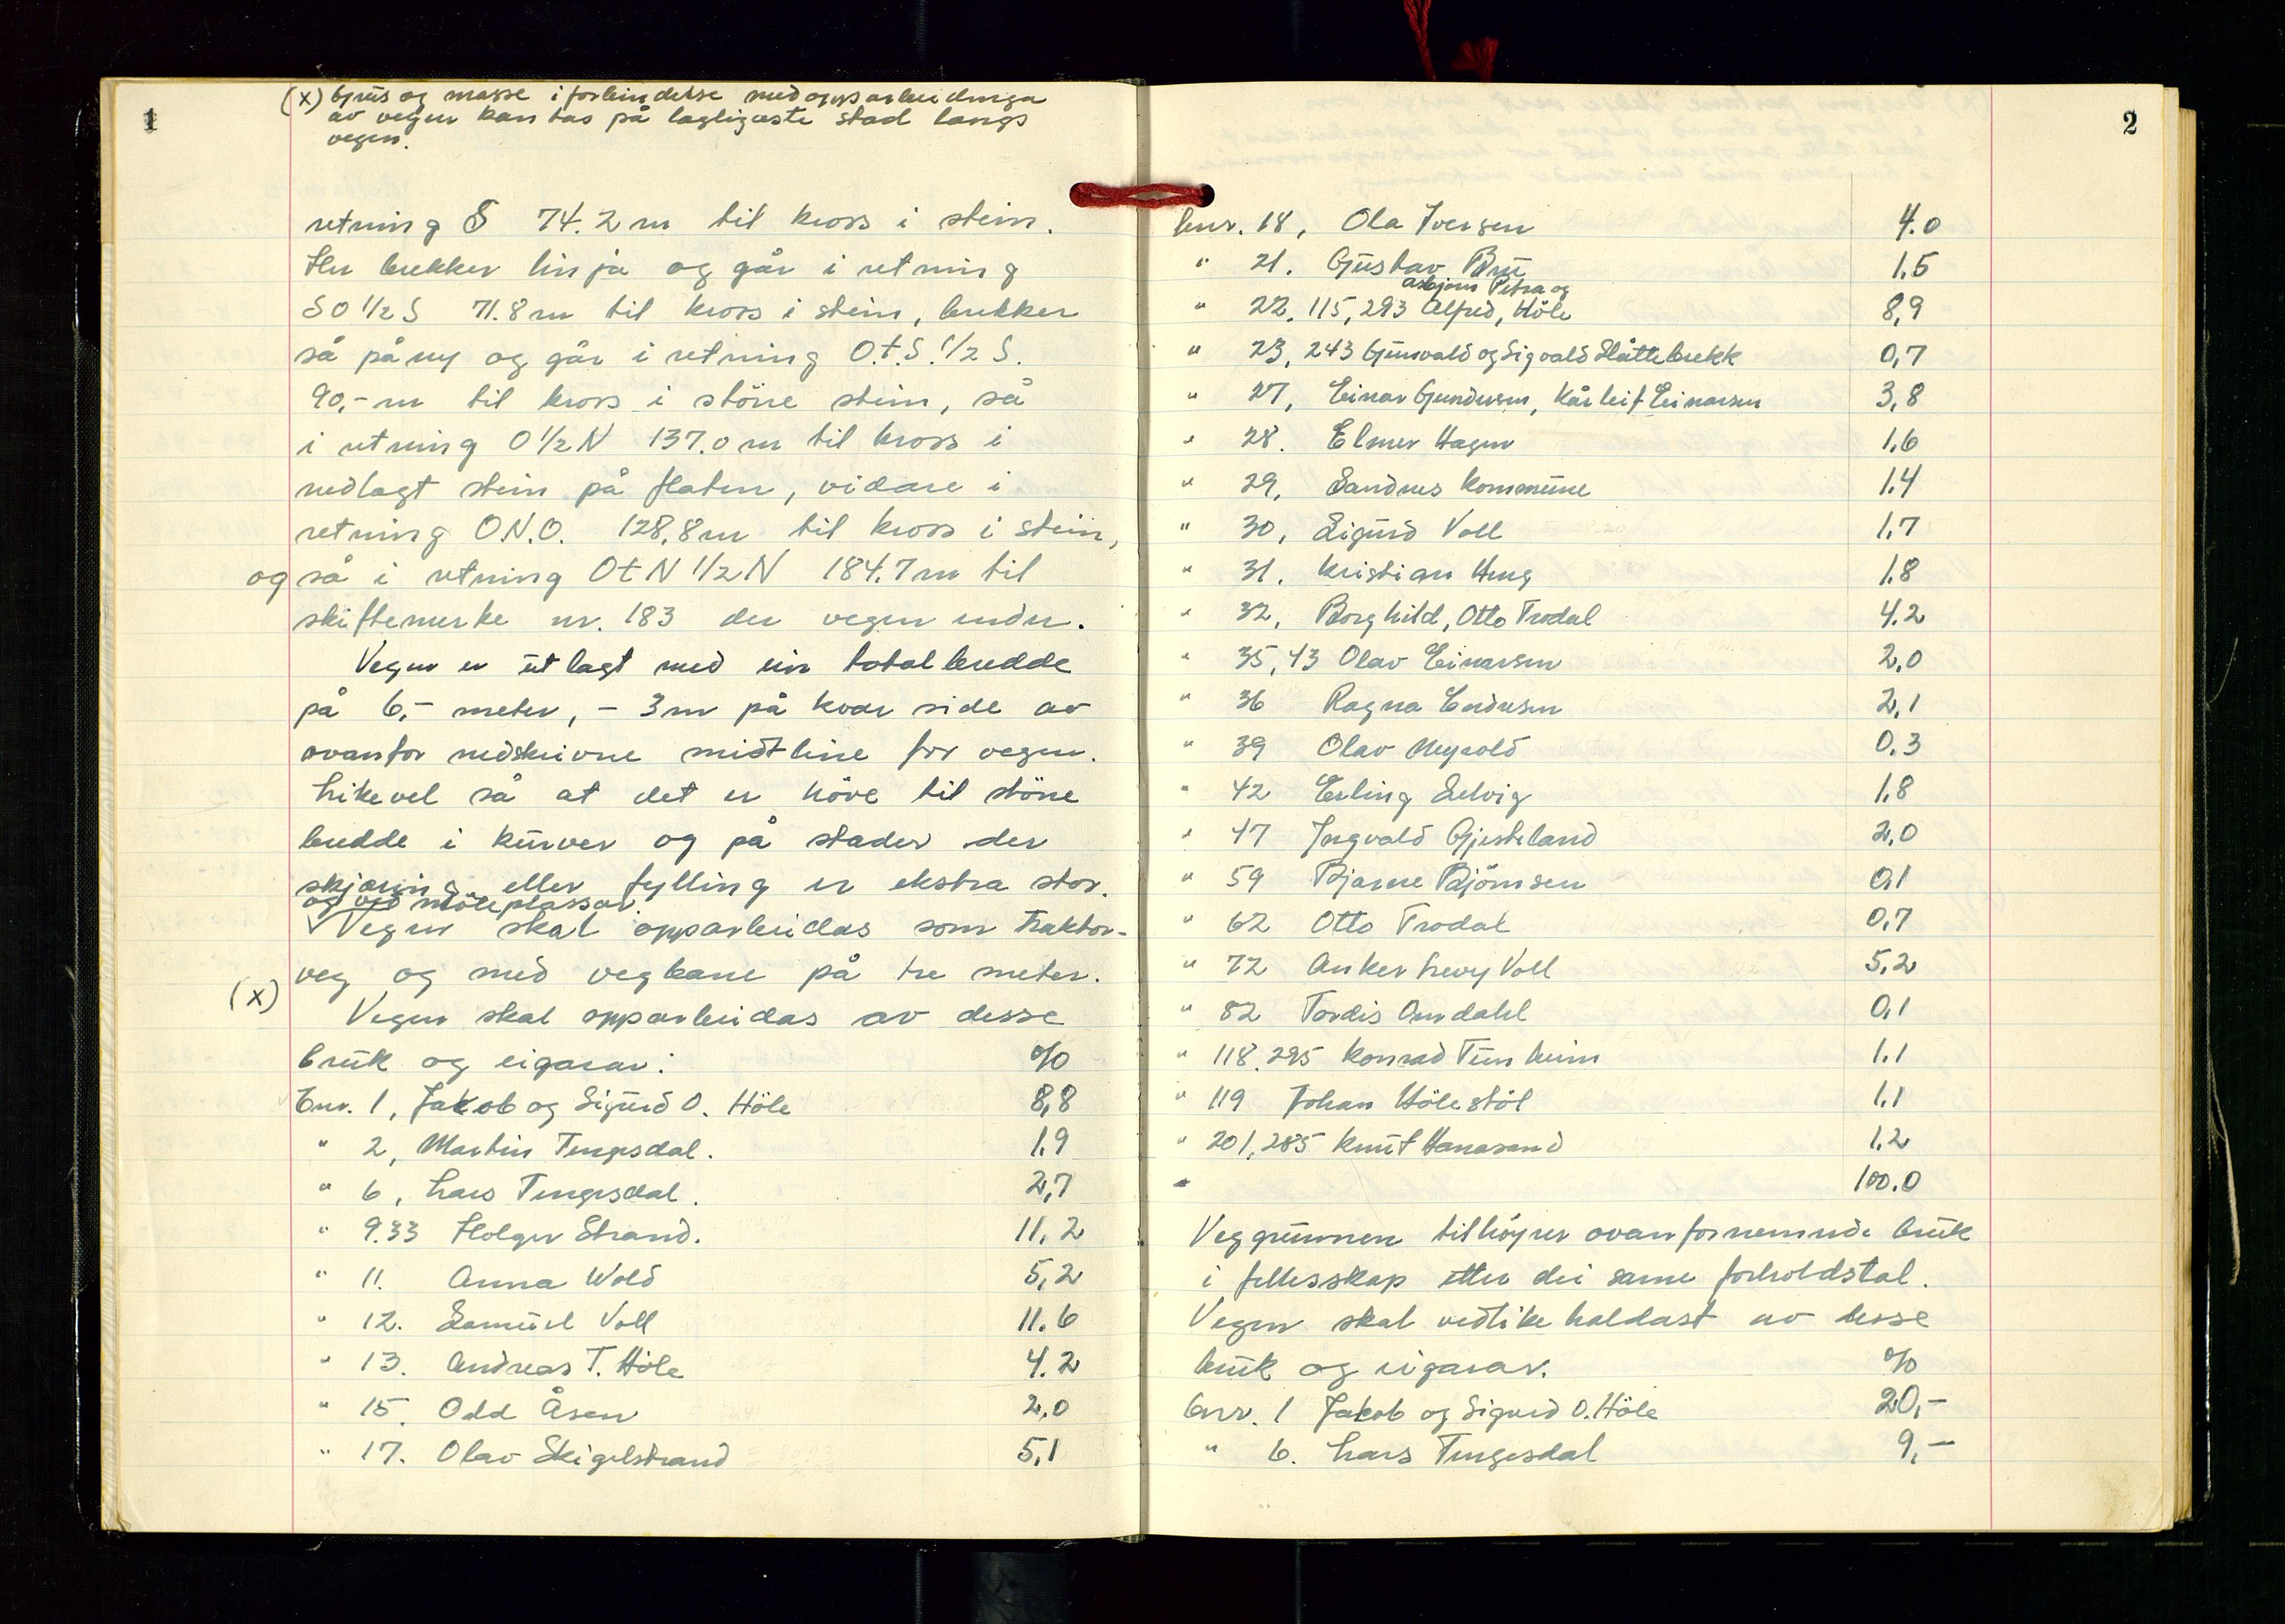 1
(x) Grus og masse i forbindelse med opparbeidinga
av vegen kan tas på lagligaste stad langs
vegen.
retning S 74.2 m til kross i stein.
Her brekker linja og går i retning
SO 1/2 S 71.8 m til kross i stein, brekker
så på ny og går i retning O.t.S. 1/2 S.
90,- m til kross i störe stein, så
i retning O 1/2 N 137.0 m til kross i
nedlagt stein på flaten, vidare i
retning O.N.O. 128,8 m til kross i stein,
og så i retning OtN 1/2 N 184.7 m til
skiftemerke nr. 183 der vegen ender.
Vegen er utlagt med ein totalbredde
på 6,- meter, - 3 m på kvar side av
ovanfor nedskrivne midtline for vegen.
Likevel så at det er höve til störe
bredde i kurver og på stader der
skjæring eller fylling er ekstra stor.
og ved möteplassar.
Vegen skal opparbeidas som traktor-
veg og med vegbane på tre meter.
(x)
Vegen skal opparbeidas av desse
bruk og eigarar: %
bnr. 1, Jakob og Sigurd O. Höle 8,8
" 2, Martin Tengesdal. 1,9
" 6, Lars Tengesdal. 2,7
" 9.33 Holger Strand. 11,2
" 11. Anna Wold 5,2
" 12. Samuel Voll 11.6
" 13. Andreas T. Höle 4.2
" 15. Odd Åsen 2,0
" 17. Olav Skigelstrand 5,1
2
bnr. 18, Ola Iversen 4.0
" 21. Gustav Bru 1,5
Asbjörn Petra og
" 22, 115, 293 Alfred, Höle 8,9
" 23, 243 Gunvald og Sigvald Slåttebrekk 0,7
" 27, Einar Gundersen, Kår Leif Einarsen 3,8
" 28. Elmer Hagen 1,6
" 29, Sandnes kommune 1.4
" 30, Sigurd Voll 1,7
" 31. Kristian Haug 1.8
" 32, Borghild, Otto Trodal 4.2
" 35, 43 Olav Einarsen 2,0
" 36 Ragna Endresen 2,1
" 39 Olav Nevold 0.3
" 42 Erling Selvig 1,8
" 47 Ingvald Gjesteland 2,0
" 59 Bjarne Björnsen 0,1
" 62 Otto Trodal 0,7
" 72 Anker Levy Voll 5,2
" 82 Tordis Omdahl 0,1
" 118.295 Konrad Tunheim 1.1
" 119 Johan Hölestöl 1.1
" 201,285 Knut Hanasand 1,2
" 100.0
Veggrunnen tilhöyrer ovanfornemnde bruk
i fellesskap etter dei same forholdstal.
Vegen skal vedlikehaldast av desse
bruk og eigarar. %
bnr. 1 Jakob og Sigurd O. Höle 20,-
" 6. Lars Tengesdal 9,-